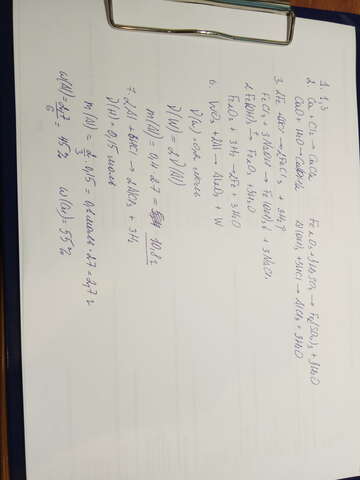 1. 1,3
2. Ca + Cl₂ → CaCl₂
CaO + H₂O → Ca(OH)₂
Fe₂O₃ + 3H₂SO₄ → Fe₂(SO₄)₃ + 3H₂O
Al(OH)₃ + 3HCl → AlCl₃ + 3H₂O
3. 2Fe + 6HCl → 2FeCl₃ + 3H₂↑
FeCl₃ + 3NaOH → Fe(OH)₃↓ + 3NaCl
2Fe(OH)₃ → Fe₂O₃ + 3H₂O
Fe₂O₃ + 3H₂ → 2Fe + 3H₂O
6. WO₃ + 2Al → Al₂O₃ + W
ν(W) = 0,2 моль
ν(W) = 2ν(Al)
m(Al) = 0,4 · 27 = 10,8 г
7. 2Al + 6HCl → 2AlCl₃ + 3H₂
ν(H) = 0,15 моль
m(Al) = 2/3 · 0,15 = 0,1 моль · 27 = 2,7 г
ω(Al) = 2,7/6 = 45% ω(Cu) = 55%